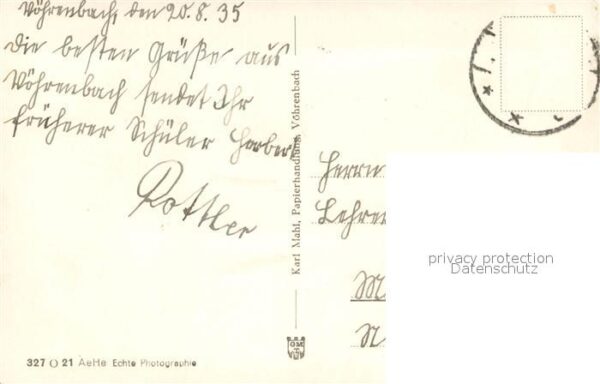 Vöhrenbach, den 20.8.35
Die besten Grüße aus
Vöhrenbach sendet Ihr
früherer Schüler Herbert
Rottler
Karl Mahl, Papierhandlung, Vöhrenbach
Herrn
Lehrer
M
N
privacy protection
Datenschutz
OM
327 O 21 AeHe Echte Photographie